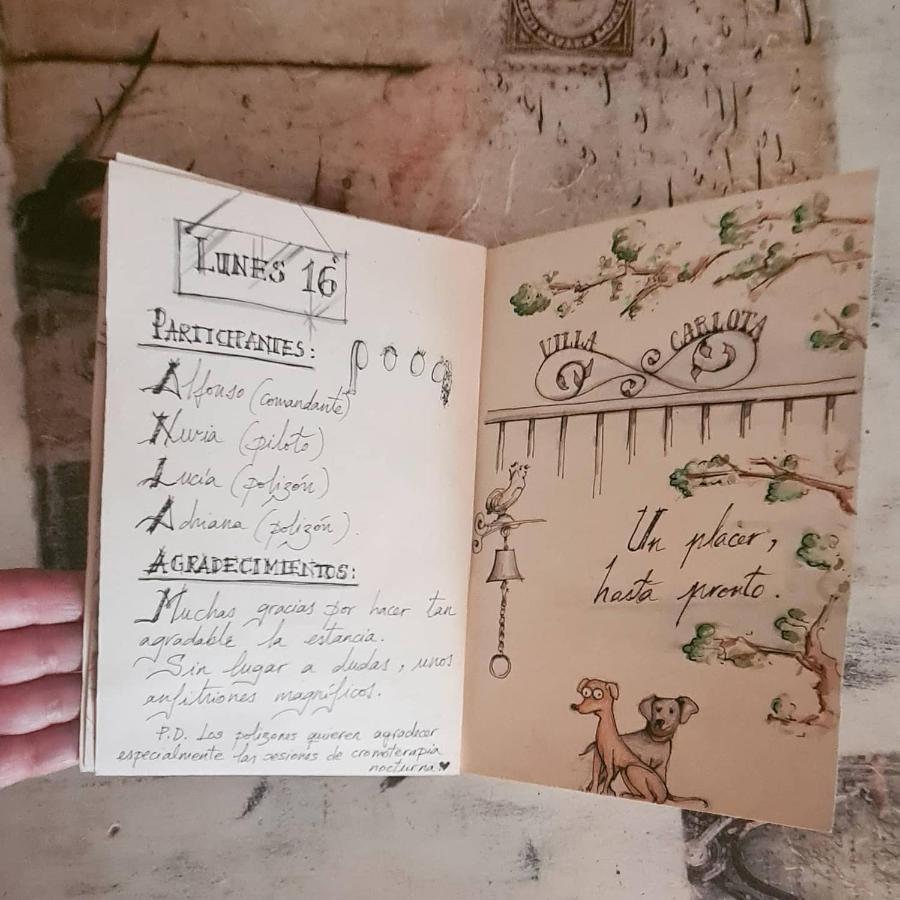 LUNES 16
PARTICIPANTES:
Alfonso (comandante)
Nuria (piloto)
Lucía (polizón)
Adriana (polizón).
AGRADECIMIENTOS:
Muchas gracias por hacer tan
agradable la estancia.
Sin lugar a dudas, unos
anfitriones magníficos.
P.D. Los polizones quieren agradecer
especialmente las sesiones de cromoterapia
nocturna ♥
VILLA CARLOTA
Un placer,
hasta pronto.